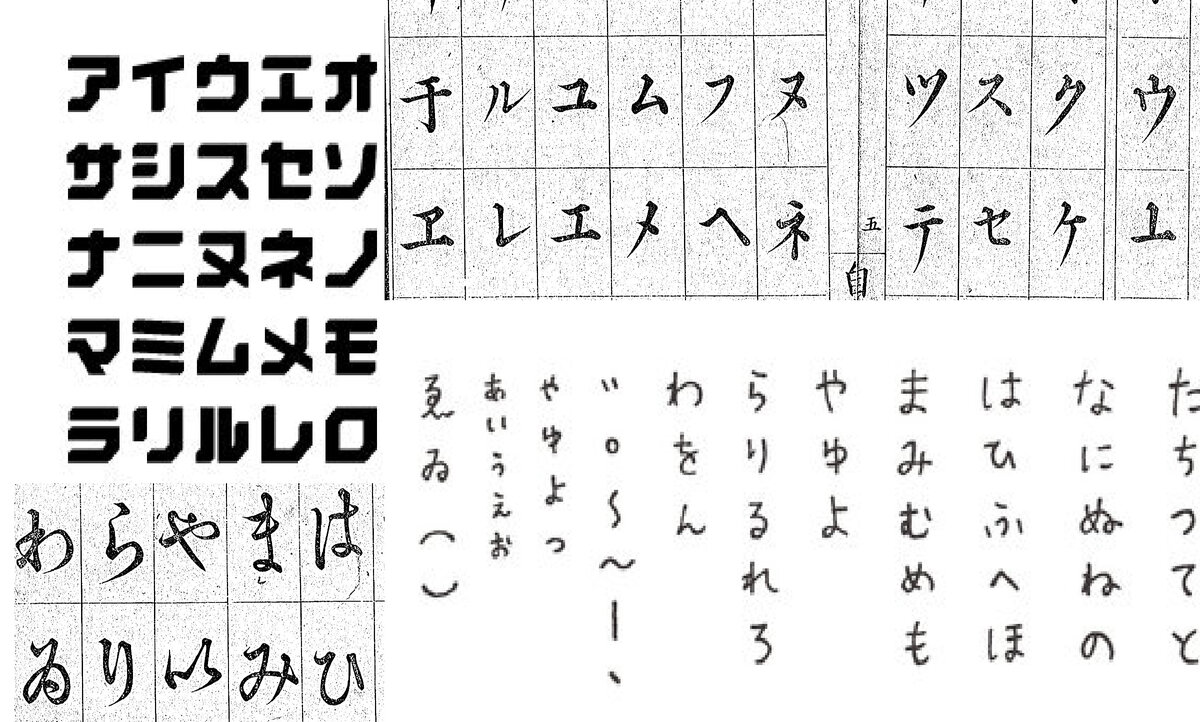 アイウエオ
サシスセソ
ナニヌネノ
マミムメモ
ラリルレロ
ウ
クケ
スセ
ツテ
五
自
ヌネ
フヘ
ムメ
ユエ
ルレ
于ヱ
はひ
まみ
や以
らり
わゐ
たちつてと
なにぬねの
はひふへほ
まみむめも
やゆよ
らりるれろ
わをん
゛゜〜～ー、
ゃゅょっ
ぁぃぅぇぉ
ゑゐ（）